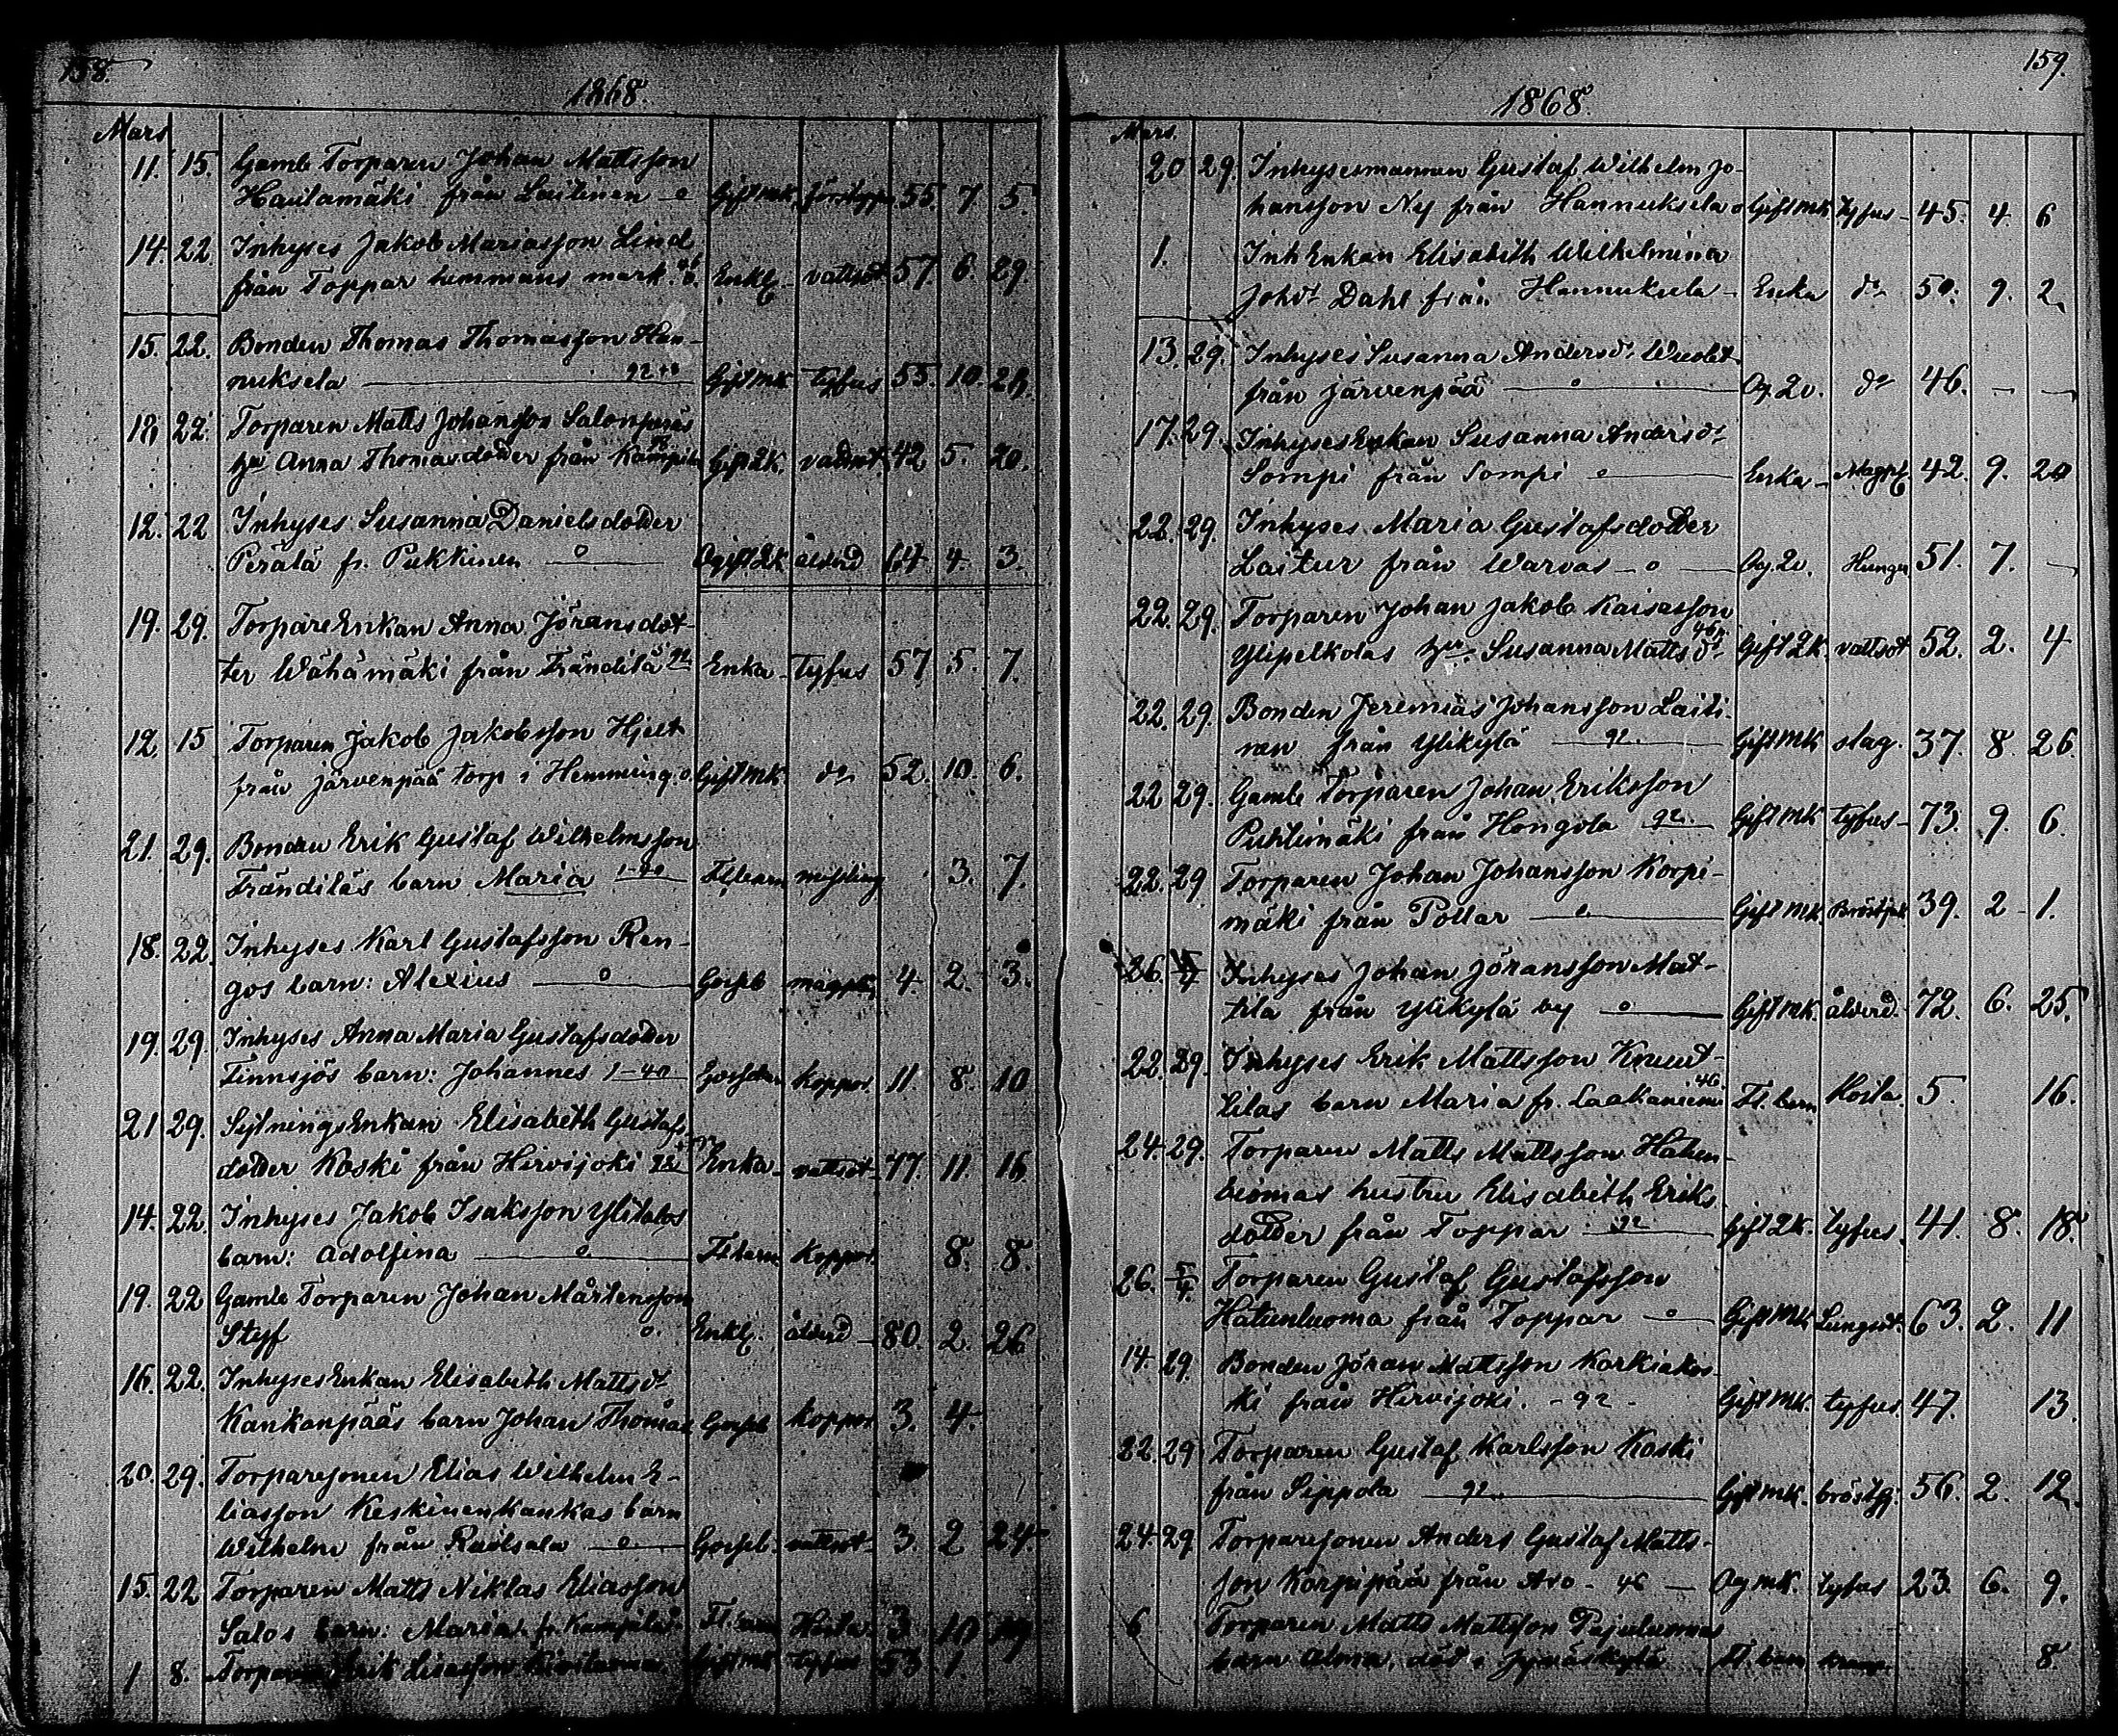 158.
1868.
Mars
11. 15. Gamle Torparen Johan Mattsson
Hautamäki från Laitinen o Gift mk. 55. 7. 5.
14. 22. Inhyses Jakob Mariasson Lind
från Toppar hemmans mark. Enkl. vattsot 57. 6. 29.
15. 22. Bonden Thomas Thomasson Han-
nuksela Gift mk tyfus 55. 10. 28.
18 22. Torparen Matts Johansson Salonpääs
hu Anna Thomasdotter från Gift 2k. vattsot 42 5. 20.
12. 22 Inhyses Susanna Danielsdotter
Perälä fr. Pukkinen o Ogift 2k ålderd 64 4. 3.
19. 29. TorpareEnkan Anna Jöransdot-
ter Wähämäki från Frändilä Enka tyfus 57 5. 7.
12. 15 Torparen Jakob Jakobsson Hjelt
från Järvenpää torp i Hemming o. Gift mk. do 52. 10. 6.
21. 29. Bonden Erik Gustaf Wilhelmsson
Frändiläs barn Maria Fl. barn messling 3. 7.
18. 22. Inhyses Karl Gustafsson Ren-
gos barn: Alexius o Gosseb 4. 2. 3.
19. 29. Inhyses Anna Maria Gustafsdotter
Finnsjös barn: Johannes 1-40 Gossebarn Koppor. 11. 8. 10
21 29. SytningsEnkan Elisabeth Gustafs
dotter Koski från Hirvijoki Enka vattsot 77. 11. 16
14. 22. Inhyses Jakob Isaksson Ylitalos
barn: Adolfina o Fl. barn Koppor. 8. 8.
19. 22 Gamle Torparen Johan Mårtensson
Styf o. Enkl. ålderd 80. 2. 26
16. 22. InhysesEnkan Elisabeth Matts dr
Kankanpääs barn Johan Thomas Gosseb Koppor 3. 4.
20. 29. Torparesonen Elias Wilhelm E-
liasson Keskinenkankas barn
Wilhelm från Ruotsala o Gosseb. vattsot 3. 2 24.
15. 22 Torparen Matts Niklas Eliasson
Salos barn: Maria fr. Kampila Fl. barn Hosta 3. 10 19
1 8. Torparen Erik Gift mk tyfus 53. 1.
159.
1868.
Mars.
20 29. Inhysesmannen Gustaf Wilhelm Jo-
hansson Ny från Hannuksela o Gift mk tyfus 45. 4. 6
1. Inh Enkan Elisabeth Wilhelmina
Joh dr Dahl från Hannuksela Enka do 50. 9. 2.
13. 29. Inhyses Susanna Anders dr
från Järvenpää o Og. 2k. do 46.
17. 29. InhysesEnkan Susanna Anders dr
Sompi från Sompi o Enka 42. 9. 20
22. 29. Inhyses Maria Gustafsdotter
Laitur från Warvas o Og. 2k. Hunger 51. 7.
22. 29. Torparen Johan Jakob Kaisasson
Ylipelkolas hu. Susanna Matts dr Gift 2k. vattsot 52. 2. 4
22. 29. Bonden Jeremias Johansson Laiti-
nen från Ylikylä 92. Gift mk slag. 37. 8. 26.
22 29. Gamle Torparen Johan Eriksson
Puhtimäki från Hongola 92. Gift mk tyfus 73. 9. 6.
22. 29 Torparen Johan Johansson Korpi-
mäki från Pottar o Gift mk. 39. 2 1.
26. 5/4 Inhyses Johan Jöransson Mat-
tila från Ylikylä by o Gift mk. ålderd. 72. 6. 25.
22. 29. Inhyses Erik Mattsson Knuut-
tilas barn Maria fr. Laakaniemi 46 Fl. barn Hosta. 5. 16.
24. 29. Torparen Matts Mattsson Haten-
luomas hustru Elisabeth Eriks
dotter från Toppar 92 Gift 2k. tyfus 41. 8. 18.
26. 5/4. Torparen Gustaf Gustafsson
Hatenluoma från Toppar o Gift mk Lungsot. 63. 2. 11
14. 29. Bonden Jöran Mattsson Karkiakos-
ki från Hirvijoki. - 92 - Gift mk. tyfus. 47. 13.
22. 29 Torparen Gustaf Karlsson Koski
från Sippola 92. Gift mk. 56. 2. 12.
24. 29. Torparesonen Anders Gustaf Matts-
son Korpipää från Aro - 46 Og mk. tyfus 23. 6. 9.
6 Torparen Matts Mattsson Pajuluomas
barn Alma, död i Jyväskylä Fl. barn 8.